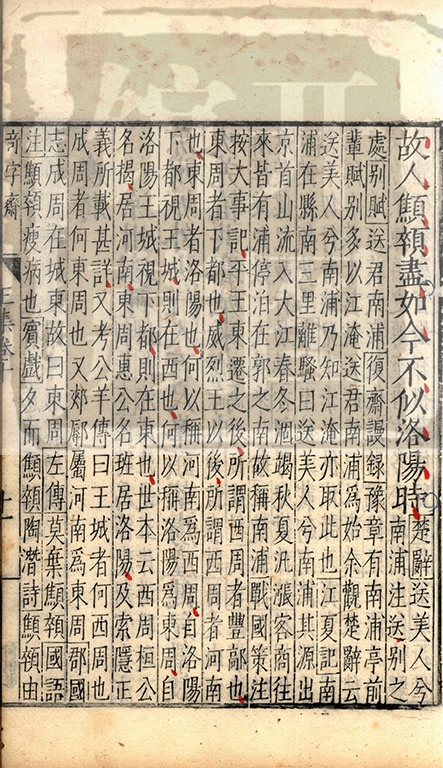 故人顦顇盡如今不似洛陽時楚辭送美人兮南浦注送别之
處别賦送君南浦復齋謾録豫章有南浦亭前
輩賦别多以江淹送君南浦為始余觀楚辭云
送美人兮南浦乃知江淹亦取此也江夏記南
浦在縣南三里離騷曰送美人兮南浦其源出
京首山流入大江春冬涸竭秋夏汎漲客商往
來皆有浦停泊在郭之南故稱南浦戰國策注
按大事記平王東遷之後所謂西周者豐鄗也
東周者下都也威烈王以後所謂西周者河南
也東周者洛陽也何以稱河南為西周自洛陽
下都視王城則在西也何以稱洛陽為東周自
洛陽王城視下都則在東也世本云西周桓公
名揭居河南東周惠公名班居洛陽及索隱正
義所載甚詳又考公羊傳曰王城者何西周也
成周者何東周也又郟鄏屬河南為東周郡國
志成周在城東故曰東周左傳莫棄顦顇國語
注顦顇瘦病也賓戲夕而顦顇陶潛詩顦顇由
奇字齋
十一